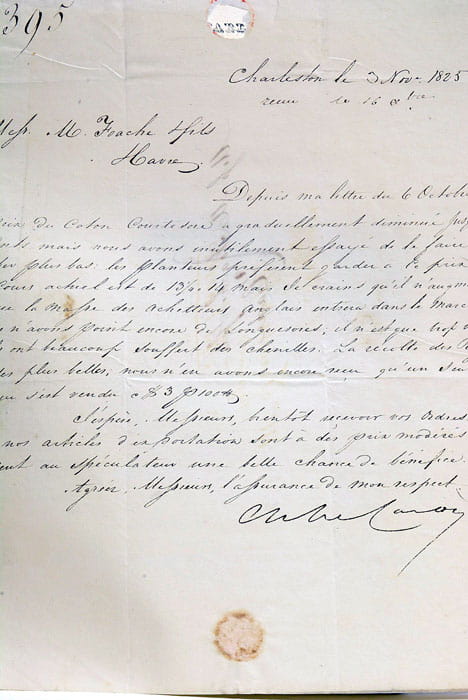 395
Charleston le 3 Nov. 1825
le 16 8bre
Mess. M. Foache & fils
Havre
Depuis ma lettre du 6 Octobre
du Coton Courtesoie a graduellement diminué
mais nous avons inutilement essayé de le faire
plus bas: les planteurs préférent garder à ce prix
Cours actuel est de 13 1/2 à 14 mais Je crains qu'il n'augm
la masse des acheteurs anglais entrera dans le Marc
n'avons point encore de Longuesoies; il n'est que trop
ont beaucoup souffert des chenilles. La récolte des
des plus belles, nous n'en avons encore reçu qu'un Seul
s'est vendu à $3
J'espère, Messieurs, bientôt recevoir vos Ordres
nos articles d'exportation sont à des prix modérés
au Spéculateur une belle chance de bénéfice
Agréez, Messieurs, l'assurance de mon respect